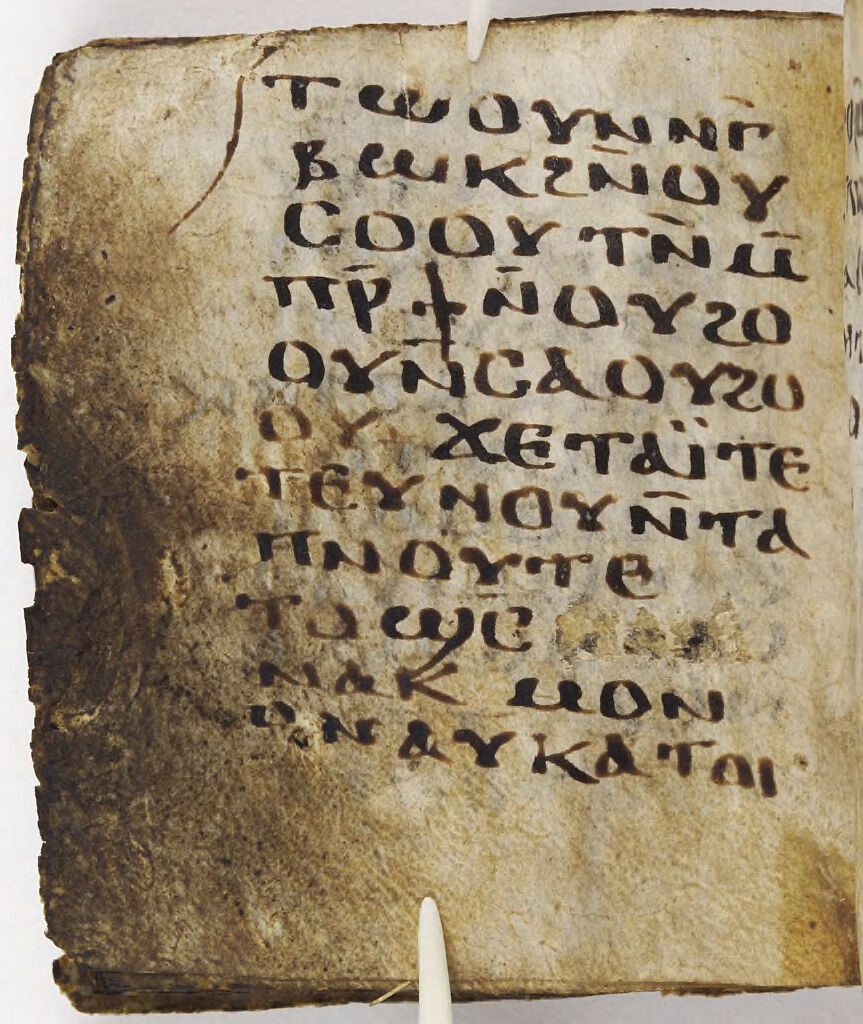 ⲧⲱⲟⲩⲛⲛⲅ̄
ⲃⲱⲕϩⲛ̄ⲟⲩ
ⲥⲟⲟⲩⲧⲛ̄ⲙ̄
ⲡⲣ̄ϯⲛ̄ⲟⲩϩⲟ
ⲟⲩⲛ̄ⲥⲁⲟⲩϩⲟ
ⲟⲩ ϫⲉⲧⲁⲓ̈ⲧⲉ
ⲧⲉⲩⲛⲟⲩⲛ̄ⲧⲁ
ⲡⲛⲟⲩⲧⲉ
ⲧⲟϣⲥ̄
ⲛⲁⲕ ⲙⲟⲛ
ⲟⲛⲁⲩⲕⲁⲧⲟⲓ